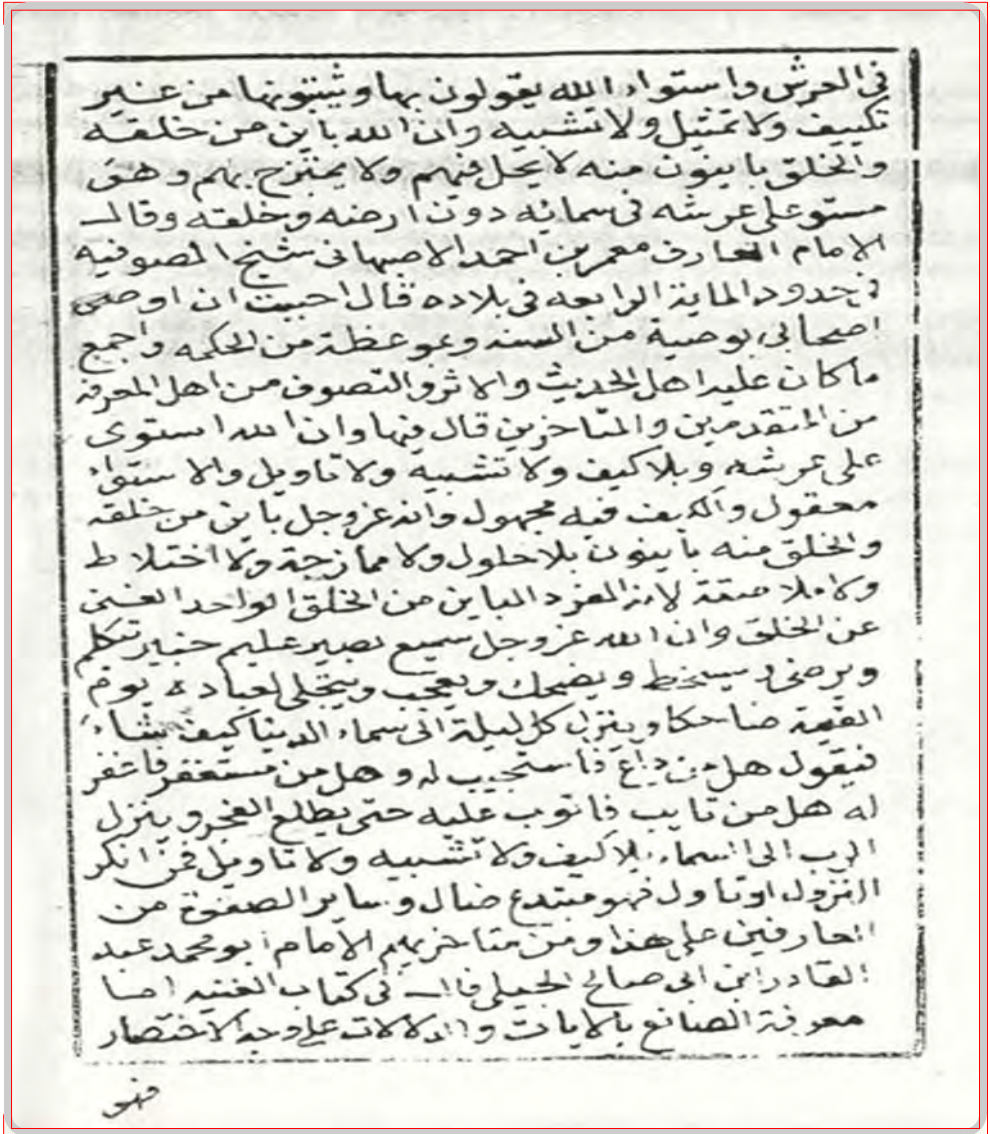 في العرش واستواء الله يقولون بها ويثبتونها من غير
تكييف ولا تمثيل ولا تشبيه وان الله باين من خلقه
والخلق باينون منه لا يحل فيهم ولا يمتزج بهم وهو
مستو على عرشه في سمائه دون ارضه وخلقه وقال
الامام العارف معمر بن احمد الاصبهاني شيخ الصوفية
في حدود الماية الرابعه في بلاده قال احببت ان اوصي
اصحابي بوصية من السنه وموعظة من الحكمه واجمع
ما كان عليه اهل الحديث والاثر والتصوف من اهل المعرفه
من المتقدمين والمتاخرين قال فيها وان الله استوى
على عرشه وبلا كيف ولا تشبيه ولا تاويل والاستواء
معقول والكيف فيه مجهول وانه عز وجل باين من خلقه
والخلق منه باينون بلا حلول ولا ممازجة ولا اختلاط
ولا ملاصقة لانه المفرد الباين من الخلق الواحد الغني
عن الخلق وان الله عز وجل سميع بصير عليم خبير تكلم
ويرضى ويسخط ويضحك ويعجب ويتجلى لعباده يوم
القيمة ضاحكا وينزل كل ليلة الى سماء الدنيا كيف شاء
فيقول هل من داع فاستجيب له وهل من مستغفر فاغفر
له هل من تايب فاتوب عليه حتى يطلع الفجر وينزل
الرب الى السماء بلا كيف ولا تشبيه ولا تاويل فمن انكر
النزول او تاول فهو مبتدع ضال وساير الصفوة من
العارفين على هذا ومن متاخريهم الامام ابو محمد عبد
القادر ابن ابي صالح الجيلي قال في كتاب الغنيه اما
معرفة الصانع بالايات والدلالات على وجه الاختصار
فهو